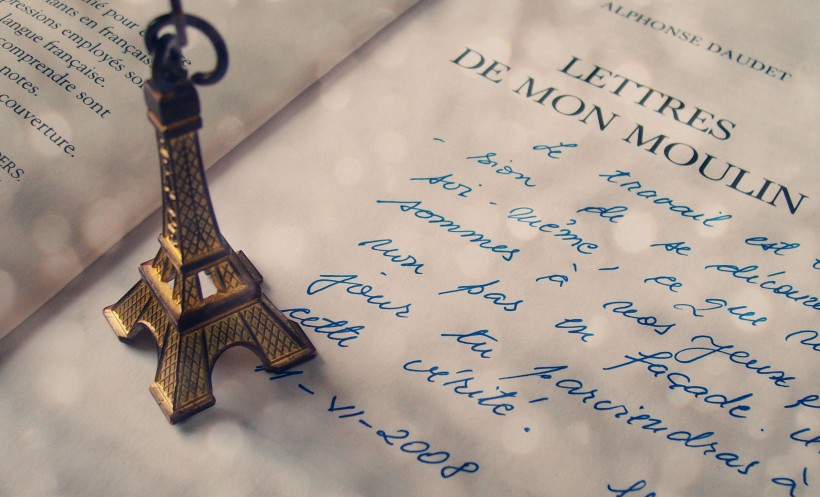 lié pour
ants en français
pressions employés so
langue française.
comprendre sont
notes.
couverture.
DERS.
ALPHONSE DAUDET
LETTRES
DE MON MOULIN
Le travail est
- sion de se décou
soi-même, ce que n
sommes à nos yeux e
non pas en façade. U
jour tu parviendras à
cette vérité.
11-VI-2008